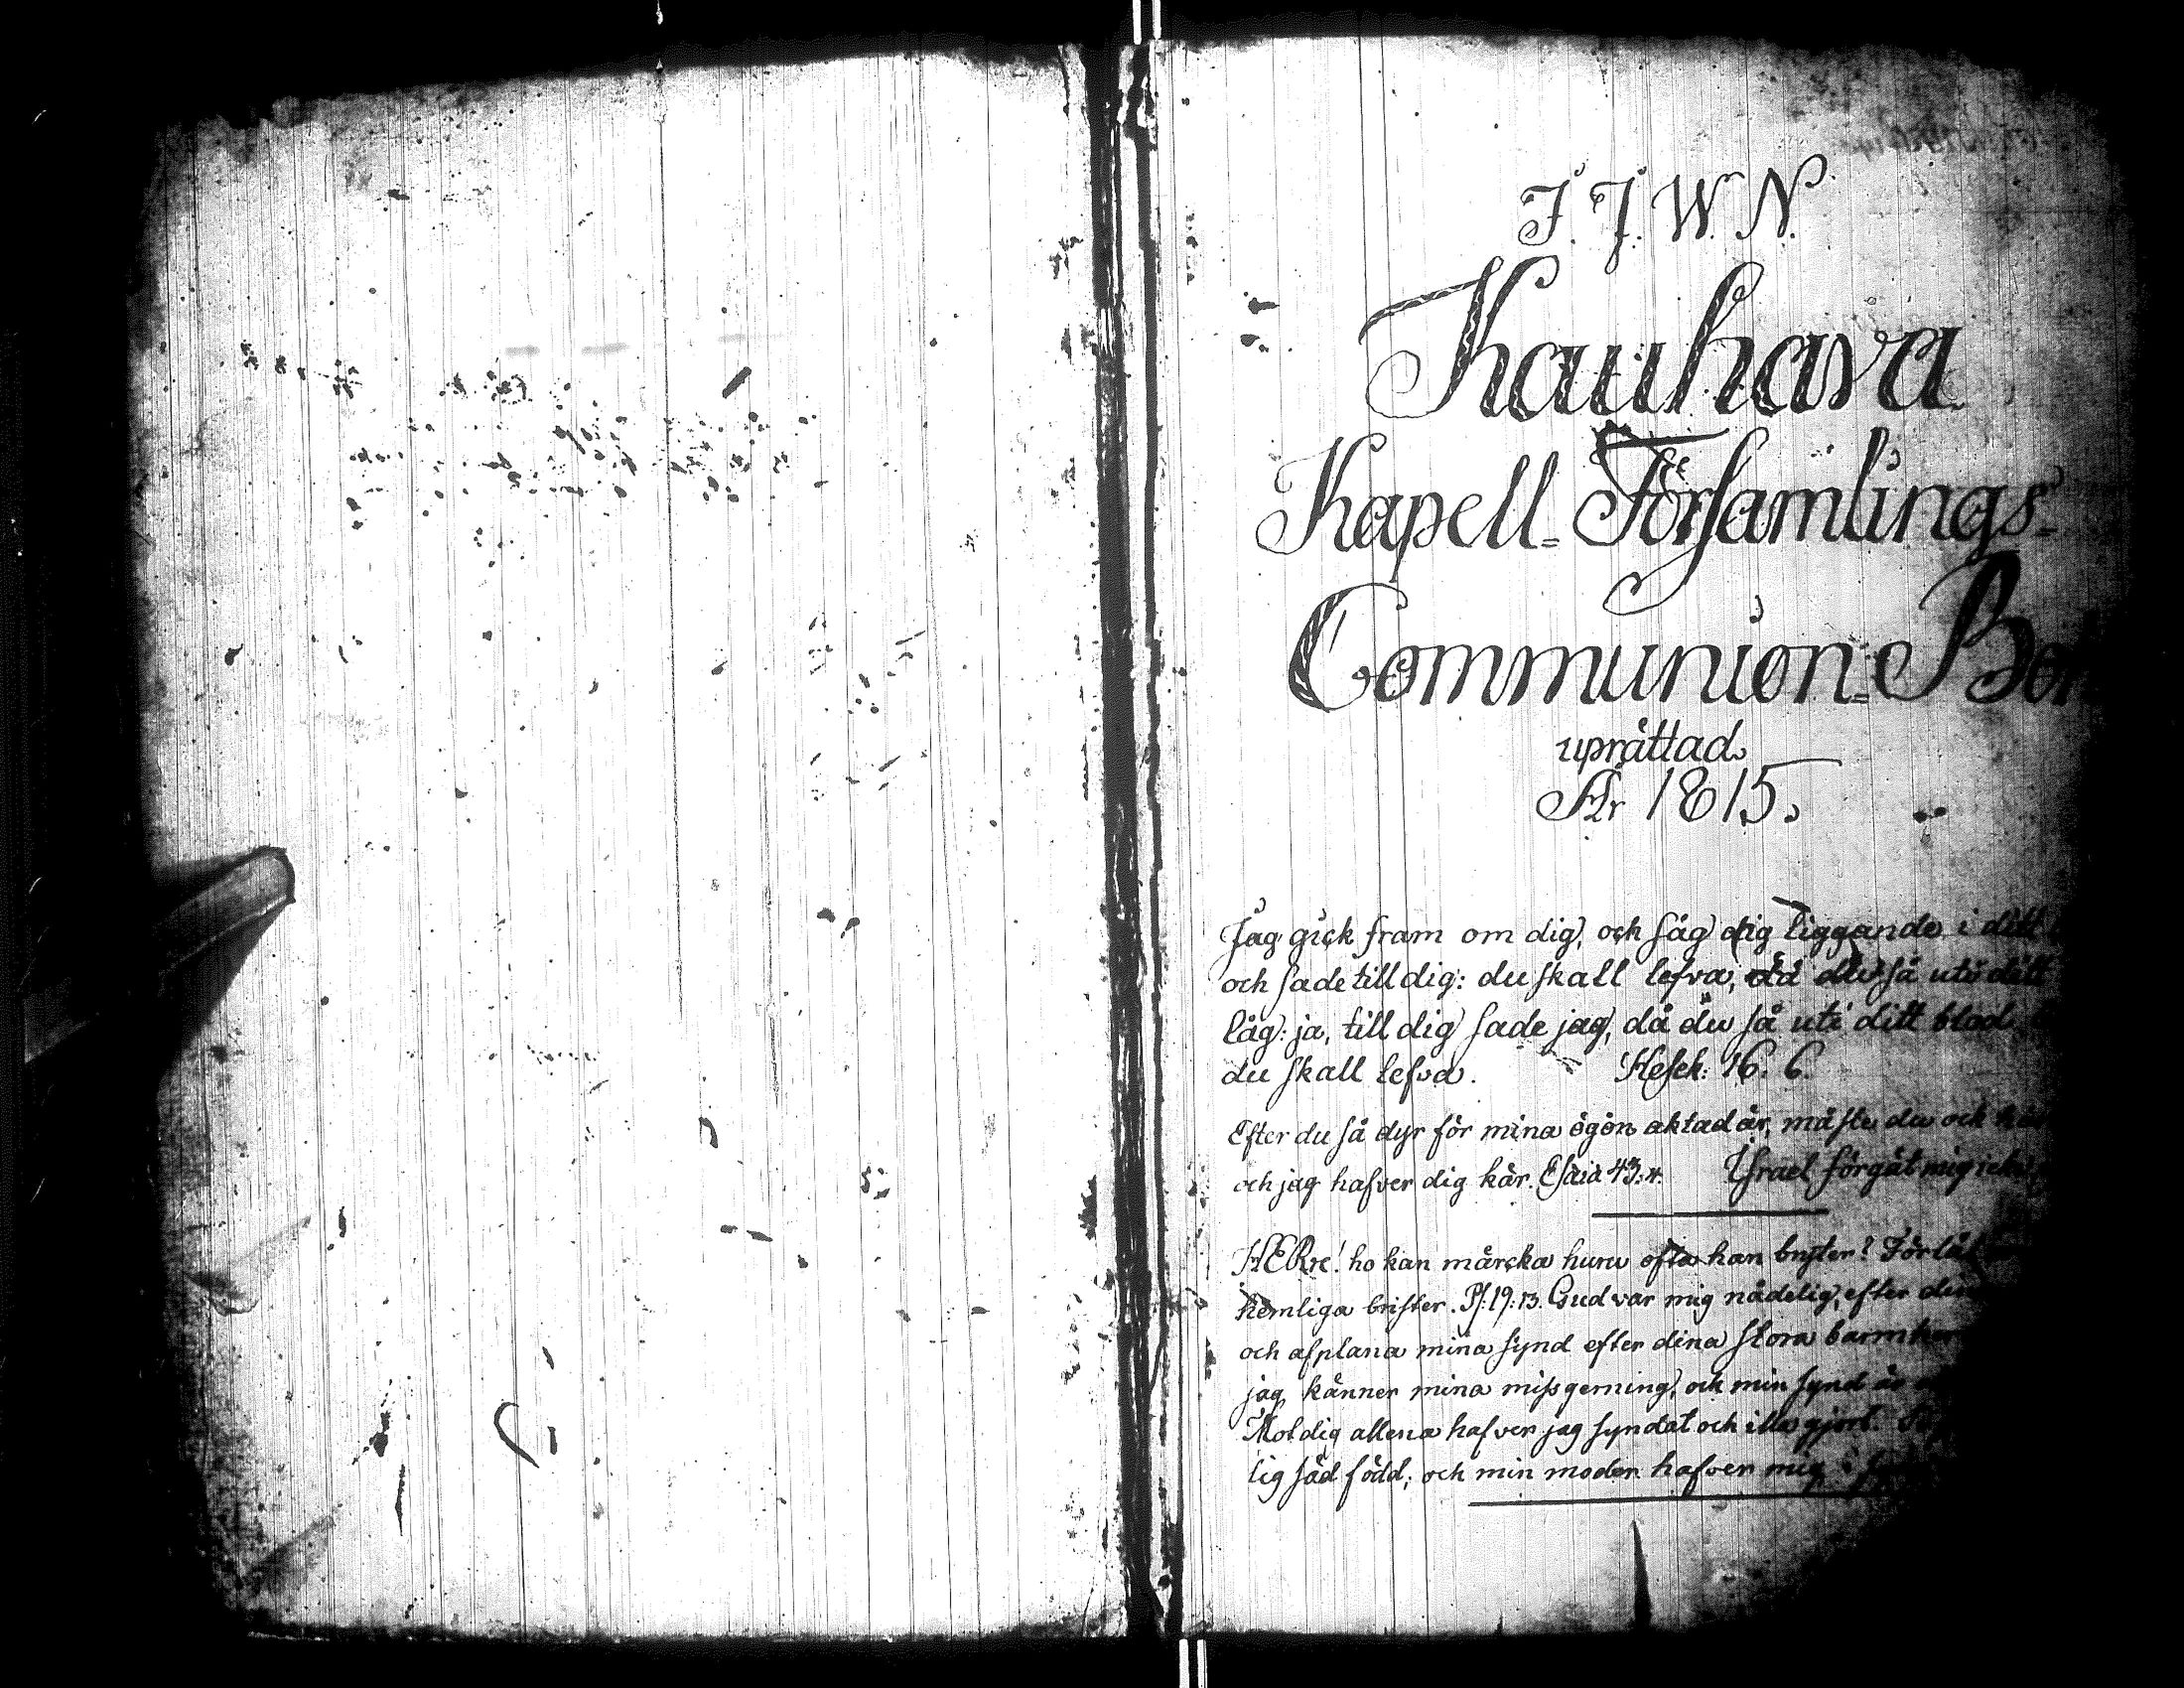 I. J. W. N.
Kauhava
Kapell- Församlings-
Communion-
uprättad
År 1815.
Jag gick fram om dig, och såg dig liggande i ditt
och sade till dig: du skall lefva, då du så uti ditt
låg: ja, till dig sade jag, då du så uti ditt blod
du skall lefva. Hesek: 16. 6.
Efter du så dyr för mina ögon aktad är, måste du ock
och jag hafver dig kär. Esaia 43: 4. Israel förgät mig icke
HERre! ho kan märcka huru ofta han bryter?
hemliga brister. Ps: 19: 13. Gud var mig nådelig, efter
och afplana mina synd efter dina stora
jag känner mina missgerning, och min synd är
Mot dig allena hafver jag syndat och illa gjort.
lig säd född; och min moder hafver mig i